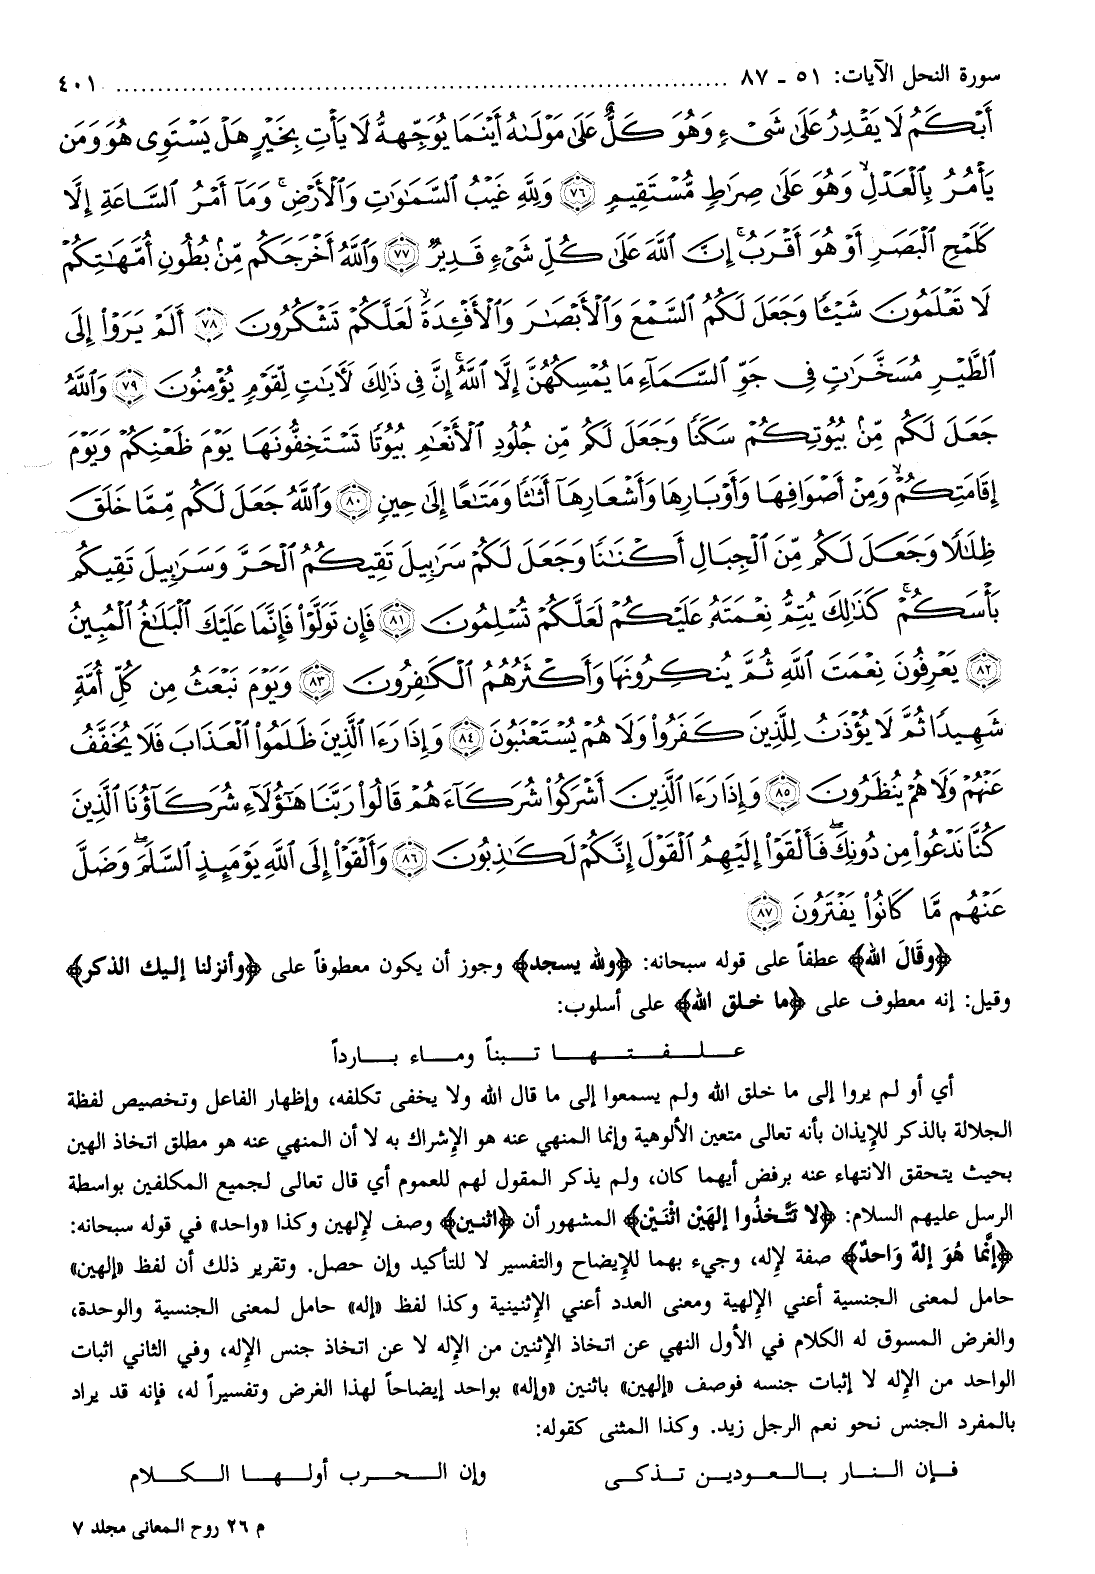 سورة النحل الآيات: ٥١ - ٨٧ .......................................................................... ٤٠١
أَبْكَمُ لَا يَقْدِرُ عَلَىٰ شَىْءٍ وَهُوَ كَلٌّ عَلَىٰ مَوْلَىٰهُ أَيْنَمَا يُوَجِّههُّ لَا يَأْتِ بِخَيْرٍ هَلْ يَسْتَوِى هُوَ وَمَن
يَأْمُرُ بِالْعَدْلِ ۙ وَهُوَ عَلَىٰ صِرَاطٍ مُّسْتَقِيمٍ ﴿٧٦﴾ وَلِلَّهِ غَيْبُ السَّمَاوَاتِ وَالْأَرْضِ ۚ وَمَا أَمْرُ السَّاعَةِ إِلَّا
كَلَمْحِ الْبَصَرِ أَوْ هُوَ أَقْرَبُ ۚ إِنَّ اللَّهَ عَلَىٰ كُلِّ شَىْءٍ قَدِيرٌ ﴿٧٧﴾ وَاللَّهُ أَخْرَجَكُم مِّنۢ بُطُونِ أُمَّهَاتِكُمْ
لَا تَعْلَمُونَ شَيْئًا وَجَعَلَ لَكُمُ السَّمْعَ وَالْأَبْصَارَ وَالْأَفْئِدَةَ ۙ لَعَلَّكُمْ تَشْكُرُونَ ﴿٧٨﴾ أَلَمْ يَرَوْا إِلَى
الطَّيْرِ مُسَخَّرَاتٍ فِى جَوِّ السَّمَاءِ مَا يُمْسِكُهُنَّ إِلَّا اللَّهُ ۗ إِنَّ فِى ذَٰلِكَ لَآيَاتٍ لِّقَوْمٍ يُؤْمِنُونَ ﴿٧٩﴾ وَاللَّهُ
جَعَلَ لَكُم مِّنۢ بُيُوتِكُمْ سَكَنًا وَجَعَلَ لَكُم مِّن جُلُودِ الْأَنْعَامِ بُيُوتًا تَسْتَخِفُّونَهَا يَوْمَ ظَعْنِكُمْ وَيَوْمَ
إِقَامَتِكُمْ ۙ وَمِنْ أَصْوَافِهَا وَأَوْبَارِهَا وَأَشْعَارِهَا أَثَاثًا وَمَتَاعًا إِلَىٰ حِينٍ ﴿٨٠﴾ وَاللَّهُ جَعَلَ لَكُم مِّمَّا خَلَقَ
ظِلَالًا وَجَعَلَ لَكُم مِّنَ الْجِبَالِ أَكْنَانًا وَجَعَلَ لَكُمْ سَرَابِيلَ تَقِيكُمُ الْحَرَّ وَسَرَابِيلَ تَقِيكُم
بَأْسَكُمْ ۚ كَذَٰلِكَ يُتِمُّ نِعْمَتَهُ عَلَيْكُمْ لَعَلَّكُمْ تُسْلِمُونَ ﴿٨١﴾ فَإِن تَوَلَّوْا فَإِنَّمَا عَلَيْكَ الْبَلَاغُ الْمُبِينُ
﴿٨٢﴾ يَعْرِفُونَ نِعْمَتَ اللَّهِ ثُمَّ يُنكِرُونَهَا وَأَكْثَرُهُمُ الْكَافِرُونَ ﴿٨٣﴾ وَيَوْمَ نَبْعَثُ مِن كُلِّ أُمَّةٍ
شَهِيدًا ثُمَّ لَا يُؤْذَنُ لِلَّذِينَ كَفَرُوا وَلَا هُمْ يُسْتَعْتَبُونَ ﴿٨٤﴾ وَإِذَا رَءَا الَّذِينَ ظَلَمُوا الْعَذَابَ فَلَا يُخَفَّفُ
عَنْهُمْ وَلَا هُمْ يُنظَرُونَ ﴿٨٥﴾ وَإِذَا رَءَا الَّذِينَ أَشْرَكُوا شُرَكَاءَهُمْ قَالُوا رَبَّنَا هَٰؤُلَاءِ شُرَكَاؤُنَا الَّذِينَ
كُنَّا نَدْعُوا مِن دُونِكَ ۖ فَأَلْقَوْا إِلَيْهِمُ الْقَوْلَ إِنَّكُمْ لَكَاذِبُونَ ﴿٨٦﴾ وَأَلْقَوْا إِلَى اللَّهِ يَوْمَئِذٍ السَّلَمَ ۖ وَضَلَّ
عَنْهُم مَّا كَانُوا يَفْتَرُونَ ﴿٨٧﴾
﴿وقَالَ الله﴾ عطفاً على قوله سبحانه: ﴿ولله يسجد﴾ وجوز أن يكون معطوفاً على ﴿وأنزلنا إليك الذكر﴾
وقيل: إنه معطوف على ﴿ما خلق الله﴾ على أسلوب:
عـلـفـتـهـا تـبـنـاً ومـاء بـارداً
أي أو لم يروا إلى ما خلق الله ولم يسمعوا إلى ما قال الله ولا يخفى تكلفه، وإظهار الفاعل وتخصيص لفظة
الجلالة بالذكر للإيذان بأنه تعالى متعين الألوهية وإنما المنهي عنه هو الإشراك به لا أن المنهي عنه هو مطلق اتخاذ الهين
بحيث يتحقق الانتهاء عنه برفض أيهما كان، ولم يذكر المقول لهم للعموم أي قال تعالى لجميع المكلفين بواسطة
الرسل عليهم السلام: ﴿لا تَتَّخذُوا إلهَيْن اثْنَيْن﴾ المشهور أن ﴿اثنين﴾ وصف لإلهين وكذا «واحد» في قوله سبحانه:
﴿إنَّما هُوَ إلهٌ وَاحدٌ﴾ صفة لإله، وجيء بهما للإيضاح والتفسير لا للتأكيد وإن حصل. وتقرير ذلك أن لفظ «إلهين»
حامل لمعنى الجنسية أعني الإلهية ومعنى العدد أعني الإثنينية وكذا لفظ «إله» حامل لمعنى الجنسية والوحدة،
والغرض المسوق له الكلام في الأول النهي عن اتخاذ الإثنين من الإله لا عن اتخاذ جنس الإله، وفي الثاني اثبات
الواحد من الإله لا إثبات جنسه فوصف «إلهين» باثنين «وإله» بواحد إيضاحاً لهذا الغرض وتفسيراً له، فإنه قد يراد
بالمفرد الجنس نحو نعم الرجل زيد. وكذا المثنى كقوله:
فـإن الـنـار بـالـعـوديـن تـذكـى وإن الـحـرب أولـهـا الـكـلام
م ٢٦ روح المعاني مجلد ٧